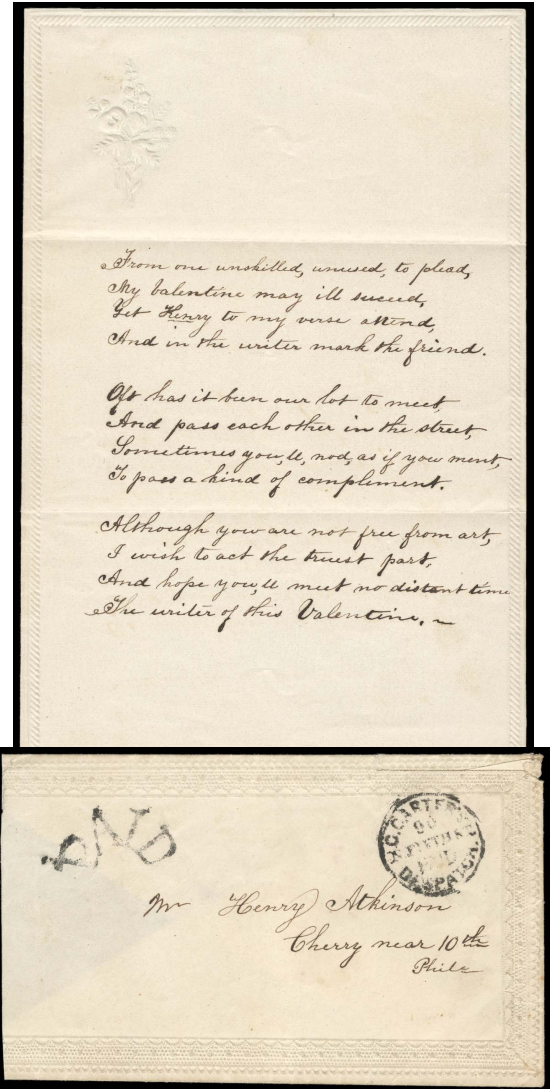 From one unskilled, unused, to plead,
My Valentine may ill suceed,
Yet Henry to my verse attend,
And in the writer mark the friend.
Oft has it been our lot to meet,
And pass each other in the street,
Sometimes you,ll, nod, as if you ment,
To pass a kind of complement.
Although you are not free from art,
I wish to act the truest part,
And hope you,ll meet no distant time
The writer of this Valentine. ~
PAID
W.C. CARTER'S
DESPATCH
Mr Henry Atkinson
Cherry near 10th
Phila